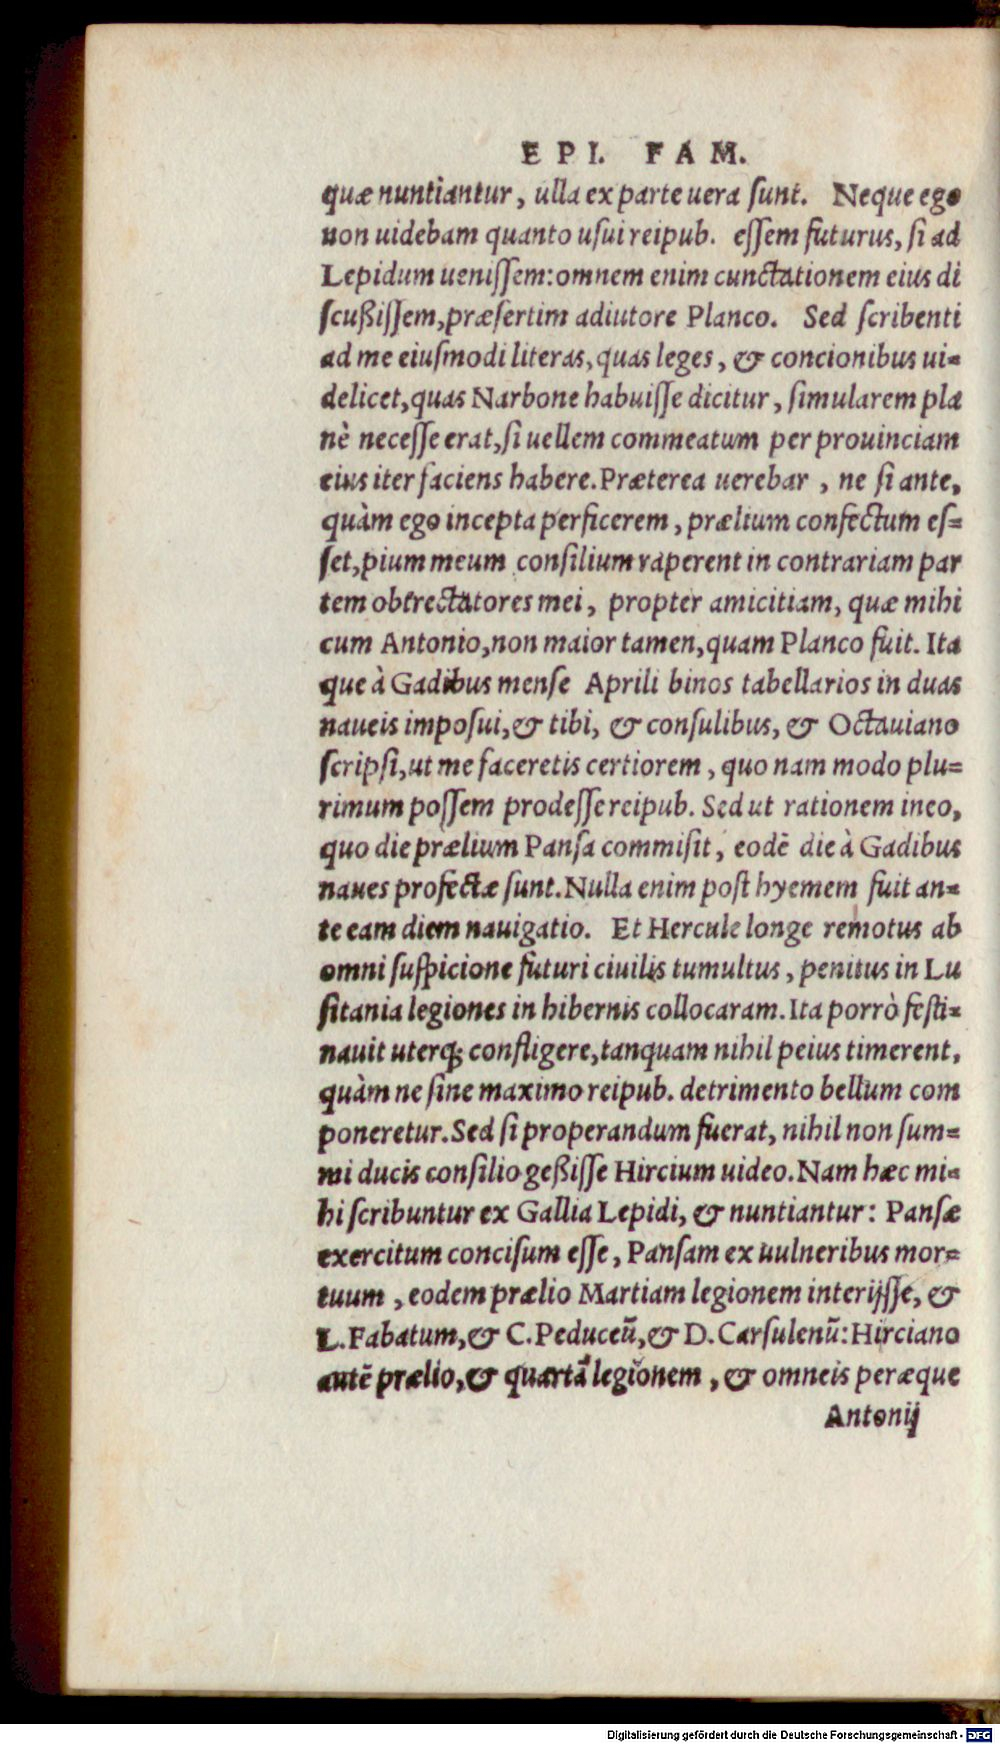 EPI. FAM.
quæ nuntiantur, ulla ex parte uera sunt. Neque ego
non uidebam quanto usui reipub. essem futurus, si ad
Lepidum uenissem: omnem enim cunctationem eius di
scußissem, præsertim adiutore Planco. Sed scribenti
ad me eiusmodi literas, quas leges, & concionibus ui=
delicet, quas Narbone habuisse dicitur, simularem pla
nè necesse erat, si uellem commeatum per prouinciam
eius iter faciens habere. Præterea uerebar, ne si ante,
quàm ego incepta perficerem, prælium confectum es=
set, pium meum consilium raperent in contrariam par
tem obtrectatores mei, propter amicitiam, quæ mihi
cum Antonio, non maior tamen, quam Planco fuit. Ita
que à Gadibus mense Aprili binos tabellarios in duas
naueis imposui, & tibi, & consulibus, & Octauiano
scripsi, ut me faceretis certiorem, quo nam modo plu=
rimum possem prodesse reipub. Sed ut rationem ineo,
quo die prælium Pansa commisit, eodē die à Gadibus
naues profectæ sunt. Nulla enim post hyemem fuit an=
te eam diem nauigatio. Et Hercule longe remotus ab
omni suspicione futuri ciuilis tumultus, penitus in Lu
sitania legiones in hibernis collocaram. Ita porrò festi=
nauit uterq; confligere, tanquam nihil peius timerent,
quàm ne sine maximo reipub. detrimento bellum com
poneretur. Sed si properandum fuerat, nihil non sum=
mi ducis consilio geßisse Hircium uideo. Nam hæc mi=
hi scribuntur ex Gallia Lepidi, & nuntiantur: Pansæ
exercitum concisum esse, Pansam ex uulneribus mor=
tuum, eodem prælio Martiam legionem interijsse, &
L. Fabatum, & C. Peduceū, & D. Carsulenū: Hirciano
autē prælio, & quartā legionem, & omneis peræque
Antonij
Digitalisierung gefördert durch die Deutsche Forschungsgemeinschaft - DFG